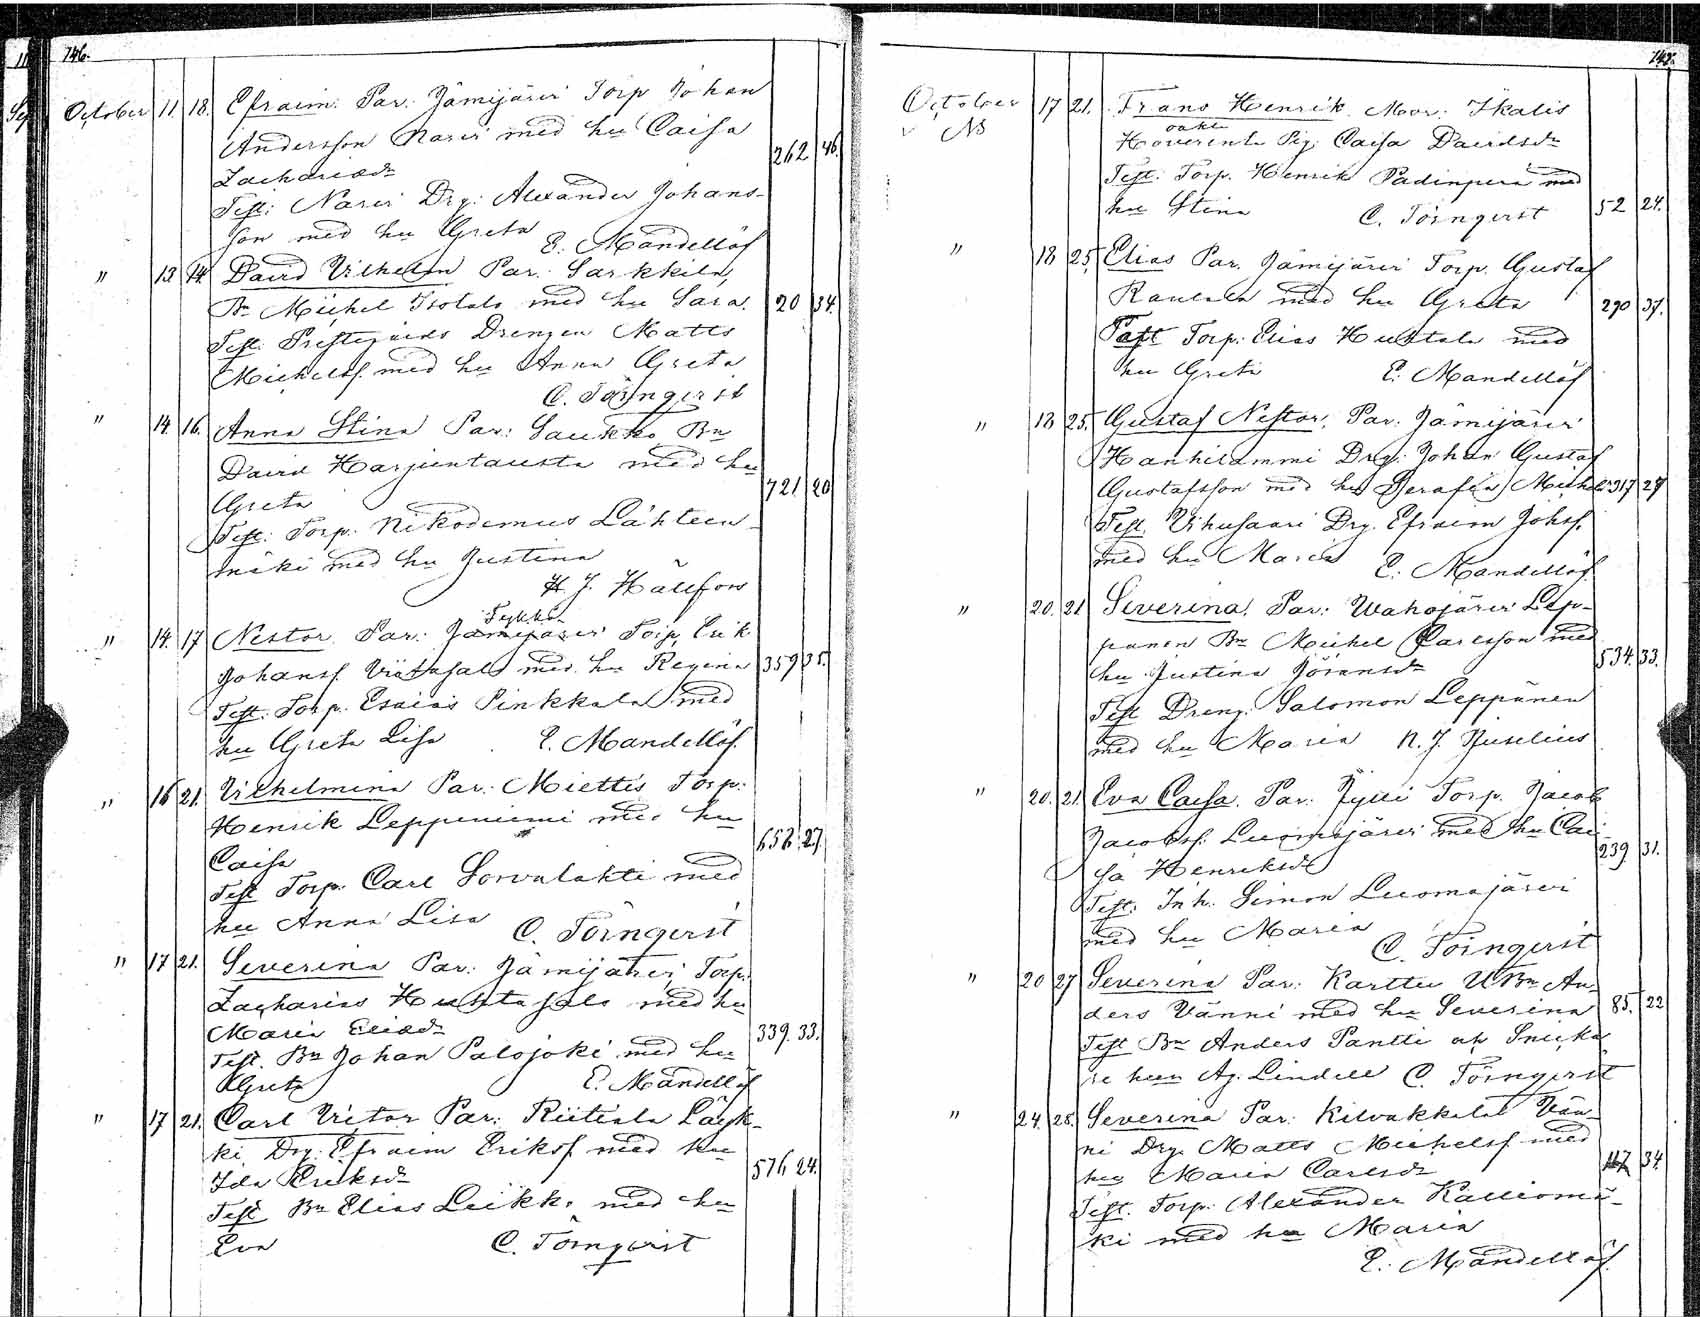 146.
October 11. 18. Efraim. Par: Jämijärvi Torp Johan
Andersson Narvi med hu Caisa
Zachariædr 262 46.
Test: Narvi Drg: Alexander Johans-
son med hu Greta
E. Mandellöf
" 13 14. David Vilhelm Par. Sarkkila
Bn Michel Isotalo med hu Sara. 20 34.
Test. Prestegårds Drengen Matts
Michelsf. med hu Anna Greta
C. Törnqvist
" 14. 16. Anna Stina Par: Saukko Bn
David Harjuntausta med hu
Greta 721 20
Test: Torp. Nikodemus Lähteen-
mäki med hu Justina
H J. Hällfors
Tykkö
" 14. 17 Nestor. Par: Jämijärvi Torp. Erik
Johansf. Viitasalo med hu Regina 359 35.
Test: Torp. Esaias Pinkkala med
hu Greta Lisa E. Mandellöf.
" 16 21. Vilhelmina Par: Miettis Torp:
Henrik Leppiniemi med hu
Caisa 656 27.
Test Torp: Carl Sorvalahti med
hu Anna Lisa C. Törnqvist
" 17 21. Severina Par: Jämijärvi Torp.
Zacharias Huhtasalo med hu
Maria Eliædr 339. 33.
Test. Bn Johan Palojoki med hu
Greta E. Mandellöf
" 17 21. Carl Victor Par: Riitiala Läyk-
ki Drg: Efraim Eriksf med hu
Ida Eriksdr 576 24.
Test Bn Elias Leikko med hu
Eva C. Törnqvist
147.
October 17 21. Frans Henrik. Mor: Ikalis
v NB Hoverinta Pig: Caisa Davidsdr
Test: Torp. Henrik Padinperä med
hu Stina C. Törnqvist 52 24.
" 18 25. Elias Par. Jämijärvi Torp. Gustaf
Rautala med hu Greta 290 37.
Test Torp: Elias Huhtala med
hu Greta E. Mandellöf
" 18 25. Gustaf Nestor. Par: Jämijärvi
Hanhilammi Drg: Johan Gustaf
Gustafsson med hu Serafia Michelsdr 317 27
Test. Vihusaari Drg. Efraim Johsf.
med hu Maria E. Mandellöf
" 20. 21 Severina. Par: Wahojärvi Lep-
pänen Bn Michel Carlsson med
hu Justina Göransdr 534. 33.
Test Dreng. Salomon Leppänen
med hu Maria N. J. Juselius
" 20. 21. Eva Caisa. Par: Jylli Torp. Jacob
Jacobsf. Luomajärvi med hu Cai-
sa Henriksdr 239. 31.
Test. Inh. Simon Luomajärvi
med hu Maria C. Törnqvist
" 20 27 Severina Par: Karttu UBn An-
ders Vänni med hu Severina 85. 22
Test Bn Anders Pantti och Snicka
re hun Ag. Lindell C. Törnqvist
" 24. 28. Severina Par: Kilvakkala Vän-
ni Drg. Matts Michelsf med
hu Maria Carlsdr 117 34.
Test. Torp. Alexander Kalliomä-
ki med hu Maria
E. Mandellöf.